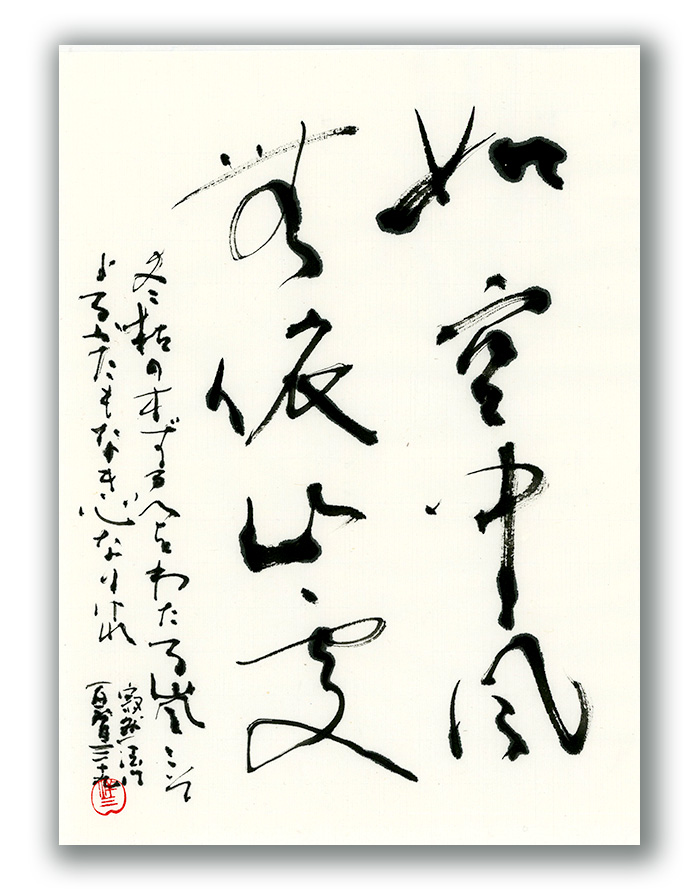 如空中風
無依止處
冬枯の木ずゑわたる嵐こそ
よるかたもなき心なりけれ
寂然法師
百首三十九